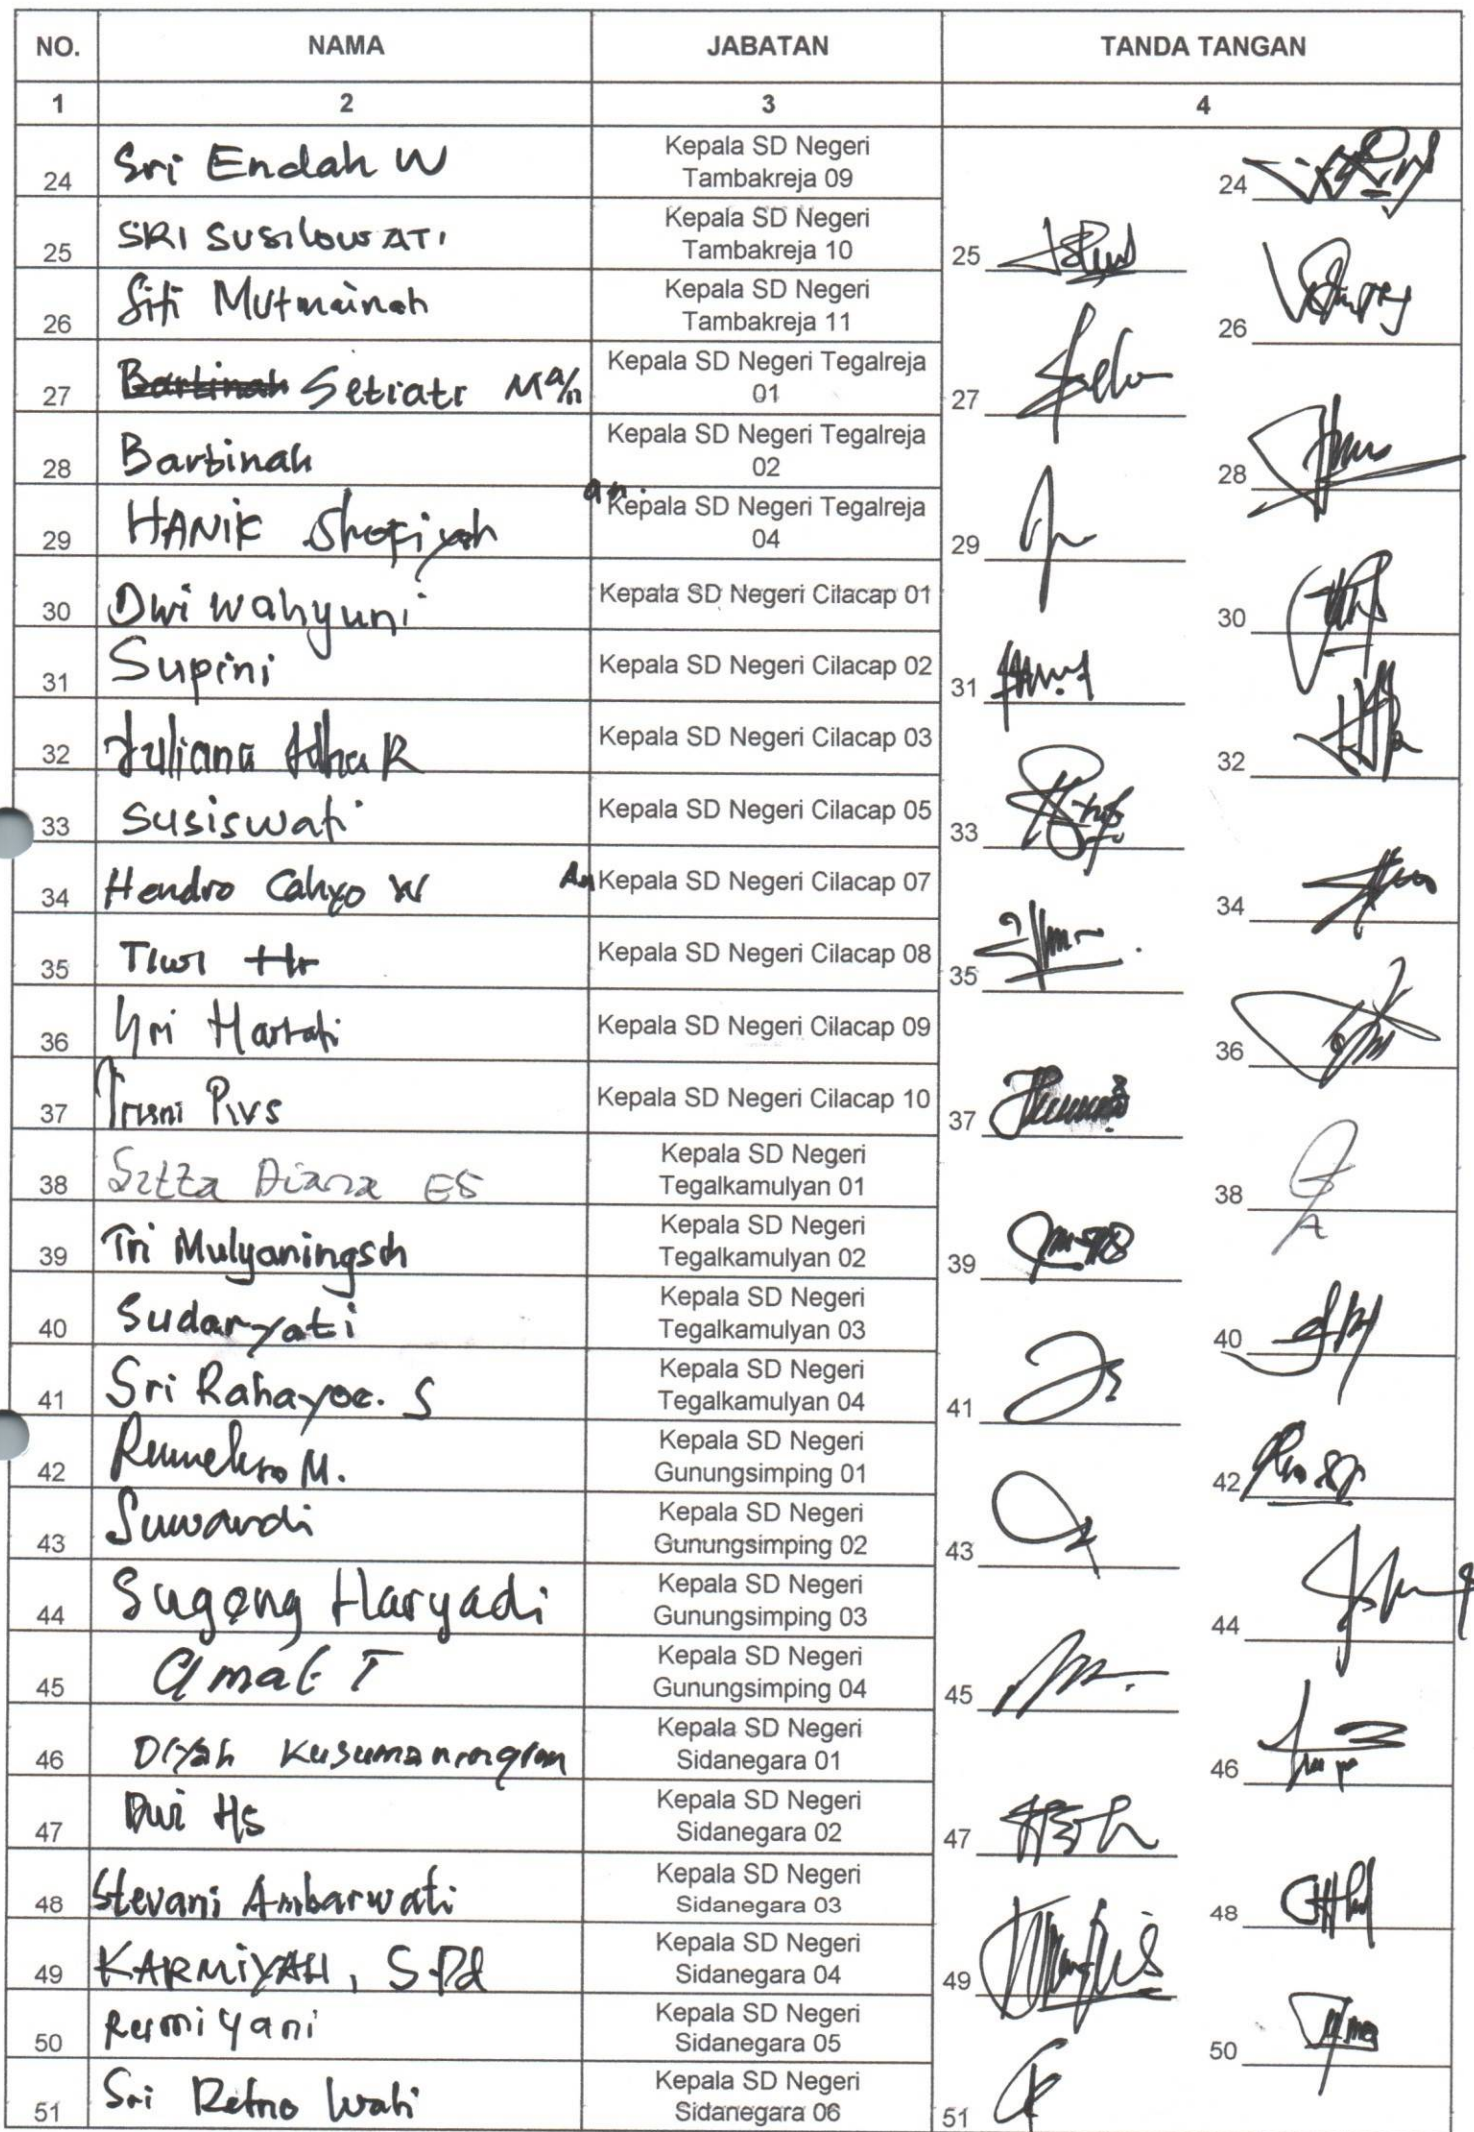 NO. NAMA JABATAN TANDA TANGAN
1 2 3 4
24 Sri Endah W Kepala SD Negeri
Tambakreja 09 24
25 SRI SUSILOWATI Kepala SD Negeri
Tambakreja 10 25
26 Siti Mutmainah Kepala SD Negeri
Tambakreja 11 26
27 Bartinah Setiati M a/n Kepala SD Negeri Tegalreja
01 27
28 Bartinah Kepala SD Negeri Tegalreja
02 28
29 HANIK Shofiyah an. Kepala SD Negeri Tegalreja
04 29
30 Dwi wahyuni Kepala SD Negeri Cilacap 01 30
31 Supini Kepala SD Negeri Cilacap 02 31
32 Juliana Idha R Kepala SD Negeri Cilacap 03 32
33 Susiswati Kepala SD Negeri Cilacap 05 33
34 Hendro Cahyo W An Kepala SD Negeri Cilacap 07 34
35 Tiwi Hr Kepala SD Negeri Cilacap 08 35
36 Yri Hartati Kepala SD Negeri Cilacap 09 36
37 Trisni Kepala SD Negeri Cilacap 10 37
38 Diana ES Kepala SD Negeri
Tegalkamulyan 01 38
39 Tri Mulyaningsih Kepala SD Negeri
Tegalkamulyan 02 39
40 Sudaryati Kepala SD Negeri
Tegalkamulyan 03 40
41 Sri Rahayoe. S Kepala SD Negeri
Tegalkamulyan 04 41
42 Rumekso M. Kepala SD Negeri
Gunungsimping 01 42
43 Suwardi Kepala SD Negeri
Gunungsimping 02 43
44 Sugeng Haryadi Kepala SD Negeri
Gunungsimping 03 44
45 Amat T Kepala SD Negeri
Gunungsimping 04 45
46 Diyah Kusumaningrum Kepala SD Negeri
Sidanegara 01 46
47 Dwi Hs Kepala SD Negeri
Sidanegara 02 47
48 Stevani Ambarwati Kepala SD Negeri
Sidanegara 03 48
49 KARMIYAH, S.Pd Kepala SD Negeri
Sidanegara 04 49
50 Rusmiyani Kepala SD Negeri
Sidanegara 05 50
51 Sri Retno Wati Kepala SD Negeri
Sidanegara 06 51